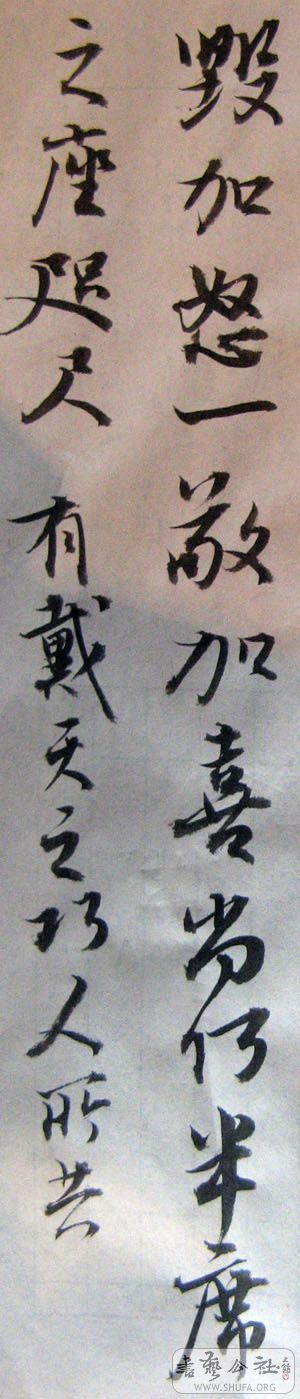 毁加怒一敬加喜尚仍半席
之座咫尺 有戴天之巧人所共
書藝公社
WWW.SHUFA.ORG